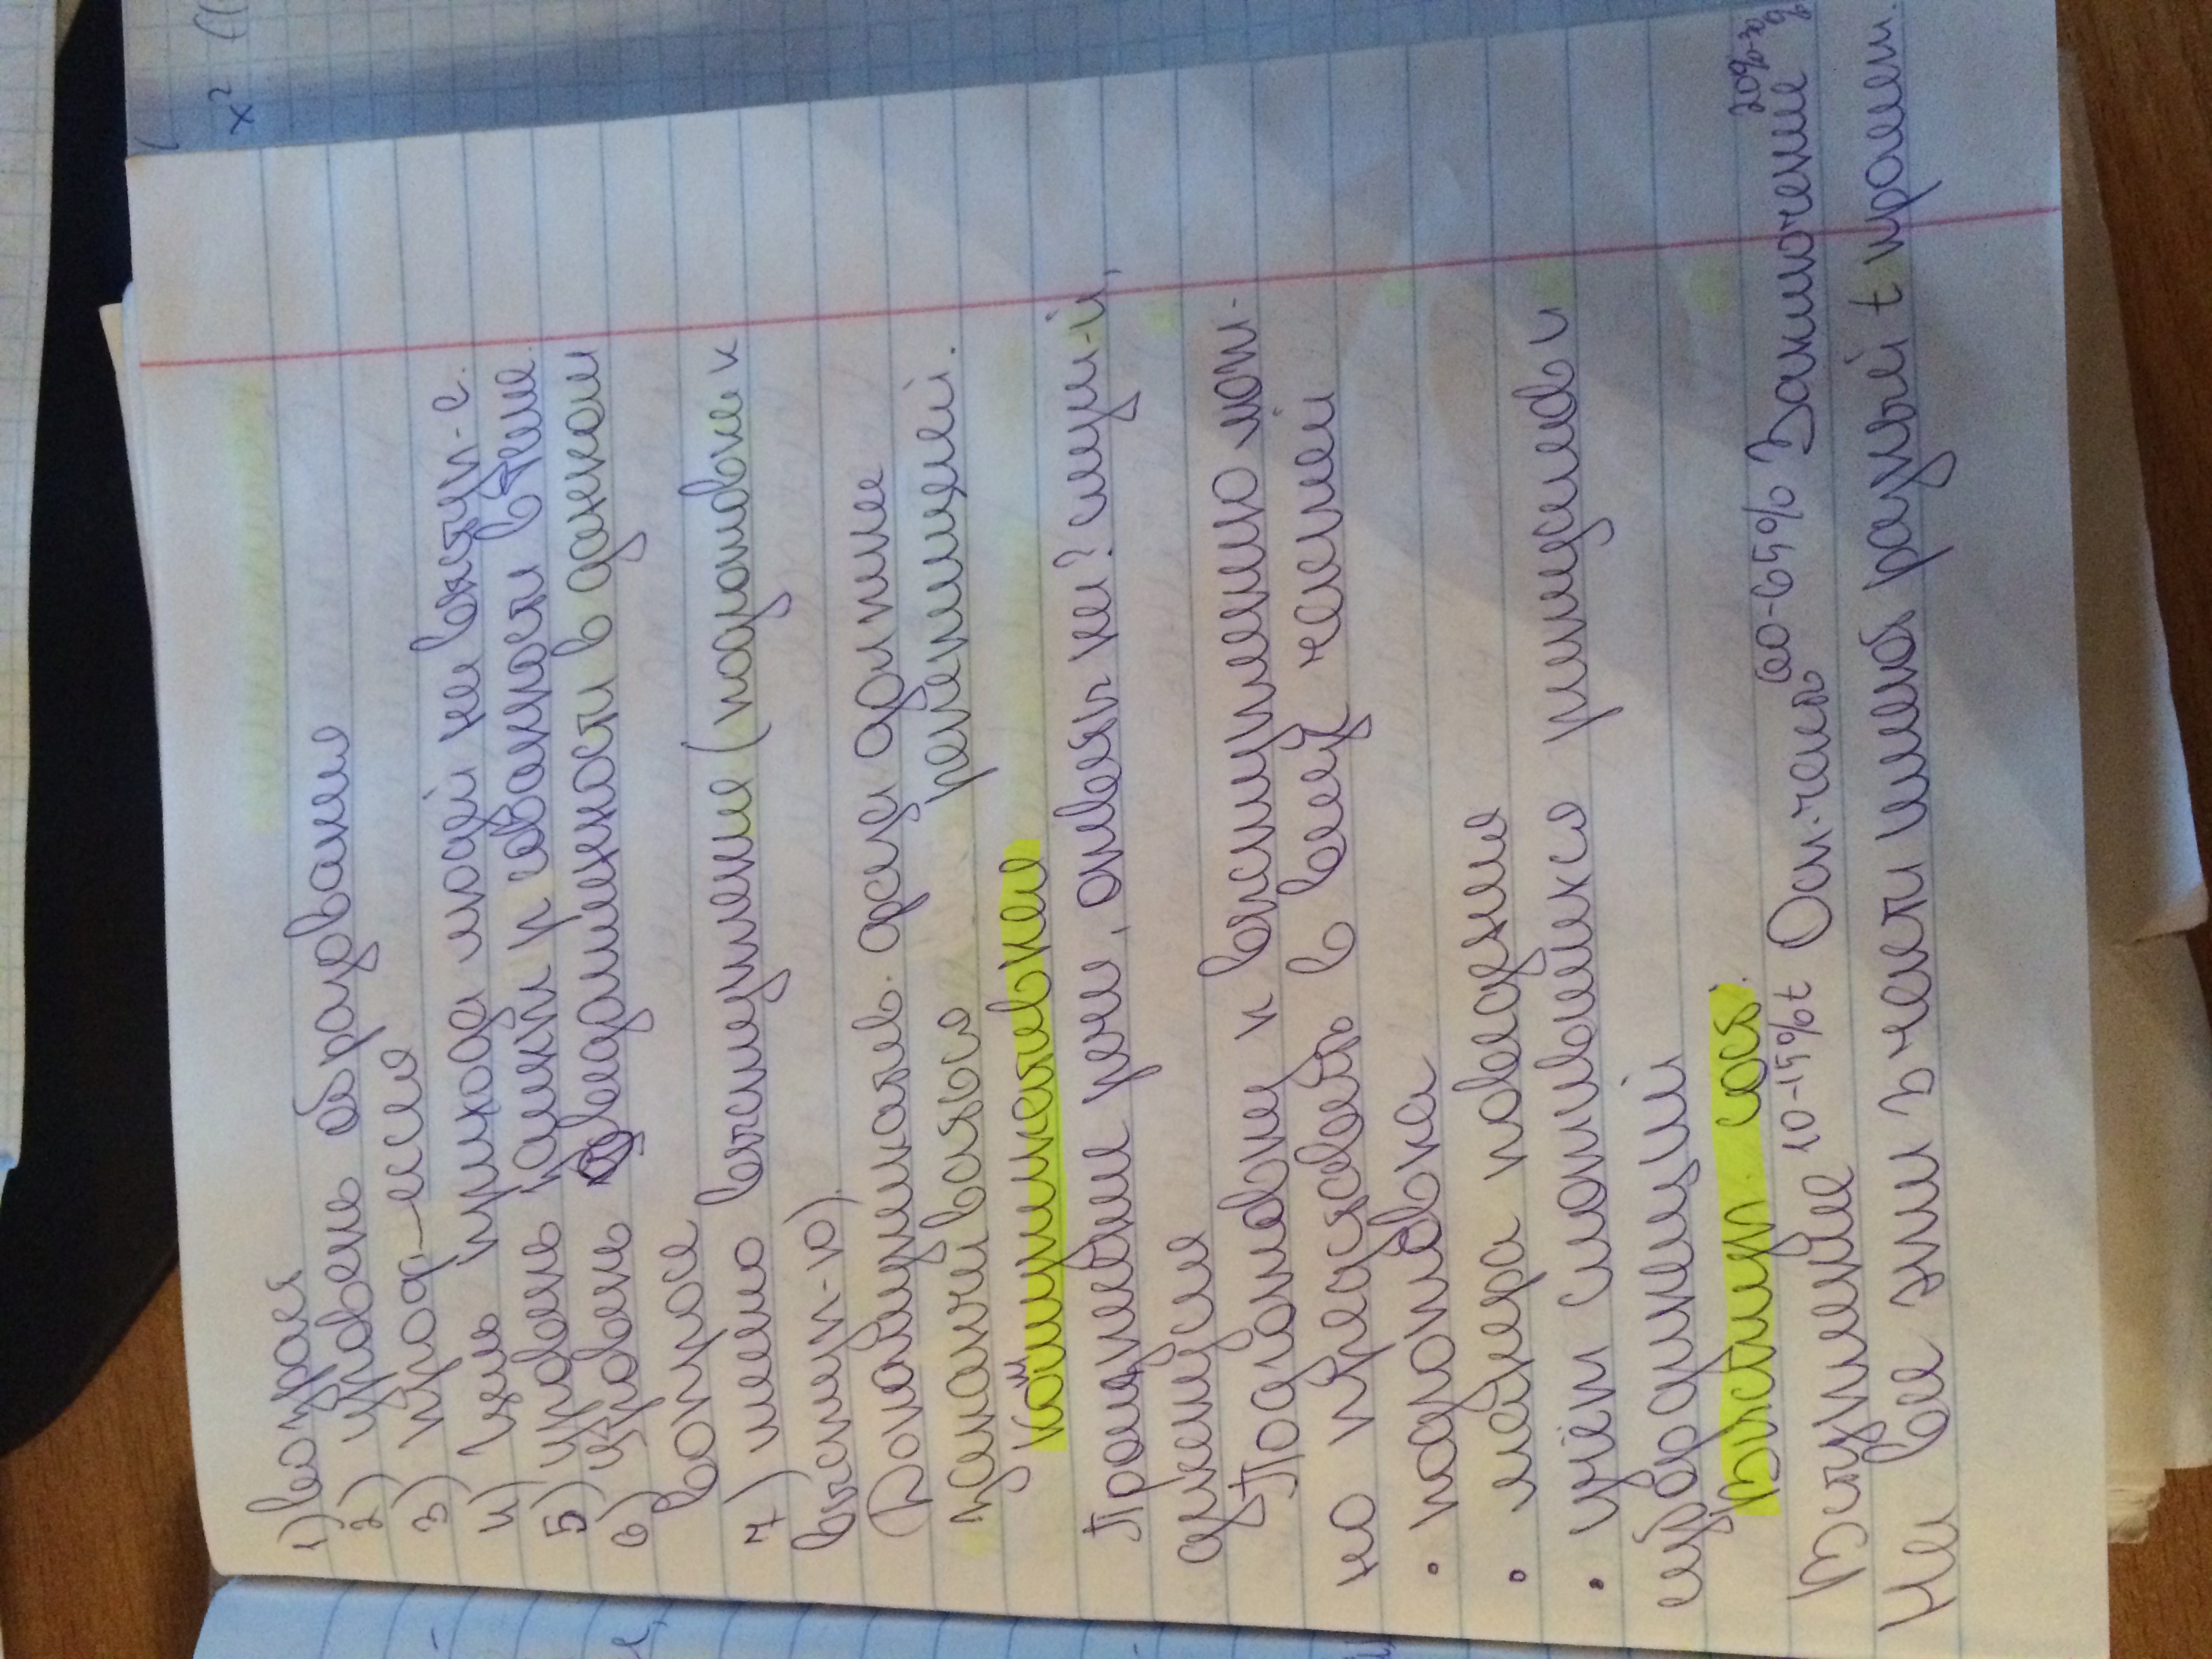 1) возраст
2) уровень образования
3) проф-ессия
4) Цель прихода людей на выступ-е.
5) уровень в теме.
6) Уровень осведомленности в данном
вопросе
7) место выступления (подготовка к
выступ-ю).
Докоммуникатив. фаза должна
заканчиваться репетицией.
коммуникативная
Произнесение речи, ответы на ? слуш-й,
дискуссия
Подготовку к выступлению мож-
но представить в виде частей
• подготовка
• манера поведения
• учёт сложившихся ритуалов и
субординаций
Выступ. сост:
Вступление 10-15% t Осн.часть 60-65% Заключение 20%-30%
На все эти 3 части имеют разный t промеж.
x²